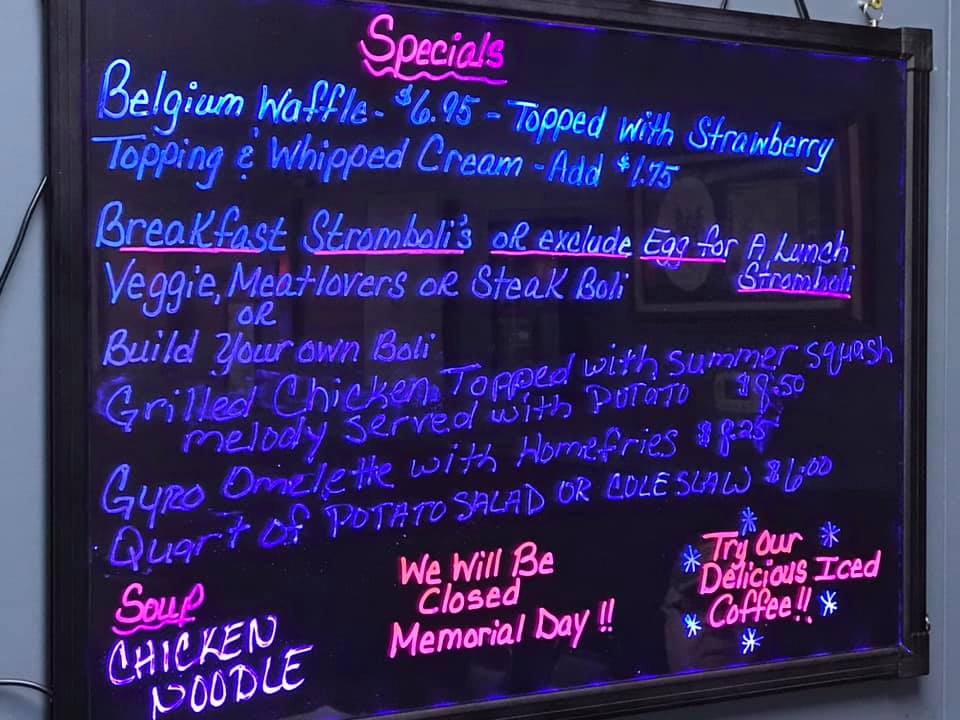 Specials
Belgium Waffle - $6.95 - Topped with Strawberry
Topping & Whipped Cream - Add $1.75
Breakfast Stromboli's or exclude Egg for A Lunch
Stromboli
Veggie, Meatlovers or Steak Boli
or
Build Your own Boli
Grilled Chicken Topped with summer squash
melody served with POTATO $9.50
Gyro Omelette with Homefries $8.25
Quart of POTATO SALAD OR COLE SLAW $6.00
Soup
CHICKEN
NOODLE
We Will Be
Closed
Memorial Day!!
Try Our
Delicious Iced
Coffee!!